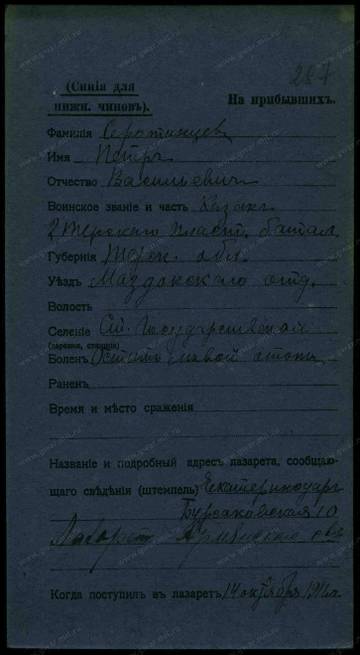 287
(Синія для
нижн. чиновъ).
На прибывшихъ.
Фамилія
Имя Петръ
Отчество Васильевичъ
Воинское званіе и часть Казакъ
2 Терскаго Пласт. батал.
Губернія Терск. обл.
Уѣздъ Маздокскаго отд.
Волость
Селеніе Ст. Государственной
(деревня, станица)
Боленъ лѣвой стопы
Раненъ
Время и мѣсто сраженія
Названіе и подробный адресъ лазарета, сообщаю-
щаго свѣдѣнія (штемпель) Екатеринодаръ
Бурсаковская 10
Лазаретъ
Когда поступилъ въ лазаретъ 14 октября 1916 г.